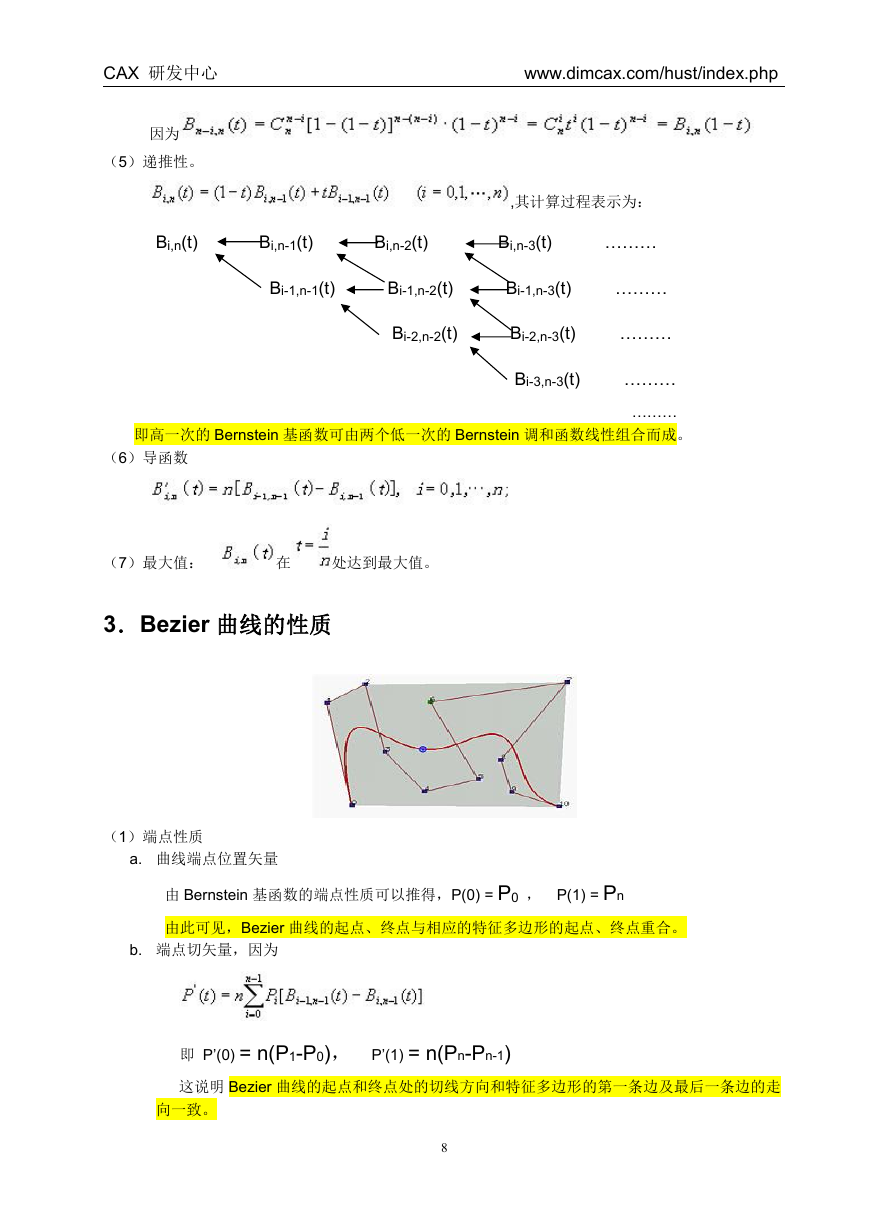 CAX 研发中心 www.dimcax.com/hust/index.php
因为 B_{n-i,n}(t) = C_n^{n-i}[1-(1-t)]^{n-(n-i)}·(1-t)^{n-i} = C_n^i t^i (1-t)^{n-i} = B_{i,n}(1-t)
（5）递推性。
B_{i,n}(t) = (1-t)B_{i,n-1}(t) + tB_{i-1,n-1}(t) (i = 0,1,⋯,n) ,其计算过程表示为：
Bi,n(t) Bi,n-1(t) Bi,n-2(t) Bi,n-3(t) ………
Bi-1,n-1(t) Bi-1,n-2(t) Bi-1,n-3(t) ………
Bi-2,n-2(t) Bi-2,n-3(t) ………
Bi-3,n-3(t) ………
………
即高一次的 Bernstein 基函数可由两个低一次的 Bernstein 调和函数线性组合而成。
（6）导函数
B'_{i,n}(t) = n[B_{i-1,n-1}(t) - B_{i,n-1}(t)], i=0,1,⋯,n;
（7）最大值： B_{i,n}(t) 在 t=i/n 处达到最大值。
3．Bezier 曲线的性质
（1）端点性质
a. 曲线端点位置矢量
由 Bernstein 基函数的端点性质可以推得，P(0) = P0 ， P(1) = Pn
由此可见，Bezier 曲线的起点、终点与相应的特征多边形的起点、终点重合。
b. 端点切矢量，因为
P'(t) = n∑_{i=0}^{n-1} P_i[B_{i-1,n-1}(t) - B_{i,n-1}(t)]
即 P’(0) = n(P1-P0)， P’(1) = n(Pn-Pn-1)
这说明 Bezier 曲线的起点和终点处的切线方向和特征多边形的第一条边及最后一条边的走
向一致。
8